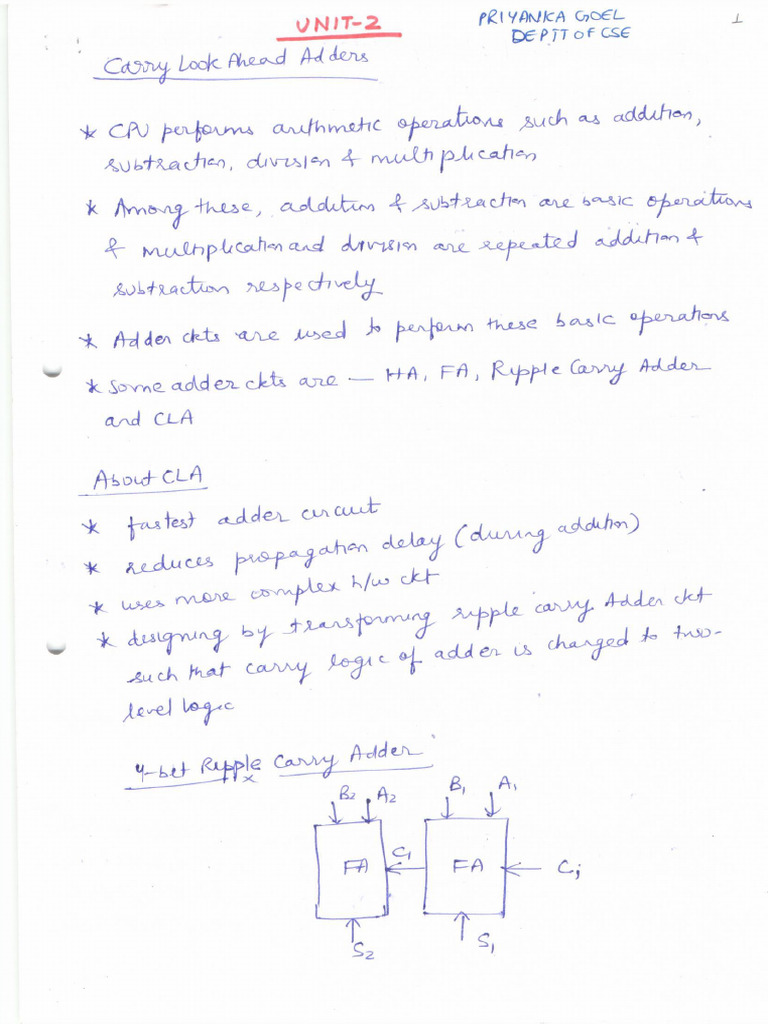 UNIT-2
PRIYANKA GOEL
DEPTT OF CSE
1
Carry Look Ahead Adders
* CPU performs arithmetic operations such as addition,
subtraction, division & multiplication
* Among these, addition & subtraction are basic operations
& multiplication and division are repeated addition &
subtraction respectively
* Adder ckts are used to perform these basic operations
* Some adder ckts are — HA, FA, Ripple Carry Adder
and CLA
About CLA
* fastest adder circuit
* reduces propagation delay (during addition)
* uses more complex h/w ckt
* designing by transforming ripple carry Adder ckt
such that carry logic of adder is changed to two-
level logic
4-bit Ripple Carry Adder
B2 A2 B1 A1
FA C1 FA Ci
S2 S1